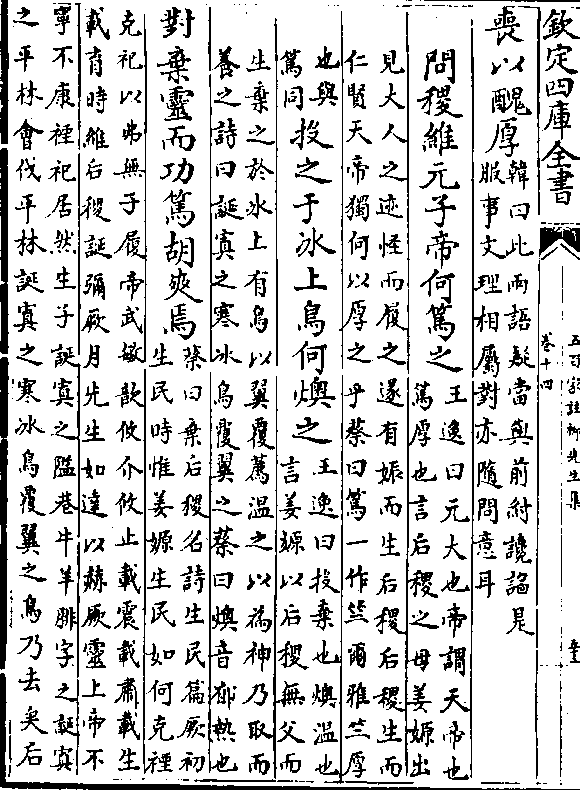 欽定四庫全書
五百家註柳先生集
卷十四
喪以醜厚韓曰此兩語疑當與前紂讒謟是
服事文理相屬對亦隨問意耳
問稷維元子帝何篤之王逸曰元大也帝謂天帝也
篤厚也言后稷之母姜嫄出
見大人之迹怪而履之遂有娠而生后稷后稷生而
仁賢天帝獨何以厚之乎蔡曰篤一作竺爾雅竺厚
也與
篤同投之于冰上鳥何燠之王逸曰投棄也燠温也
言姜嫄以后稷無父而
生棄之於冰上有鳥以翼覆薦温之以為神乃取而
養之詩曰誕寘之寒冰鳥覆翼之蔡曰燠音郁熱也
對棄靈而功篤胡爽焉蔡曰棄后稷名詩生民篇厥初
生民時惟姜嫄生民如何克禋
克祀以弗無子履帝武敏歆攸介攸止載震載肅載生
載育時維后稷誕彌厥月先生如達以赫厥靈上帝不
寧不康禋祀居然生子誕寘之隘巷牛羊腓字之誕寘
之平林會伐平林誕寘之寒冰鳥覆翼之鳥乃去矣后